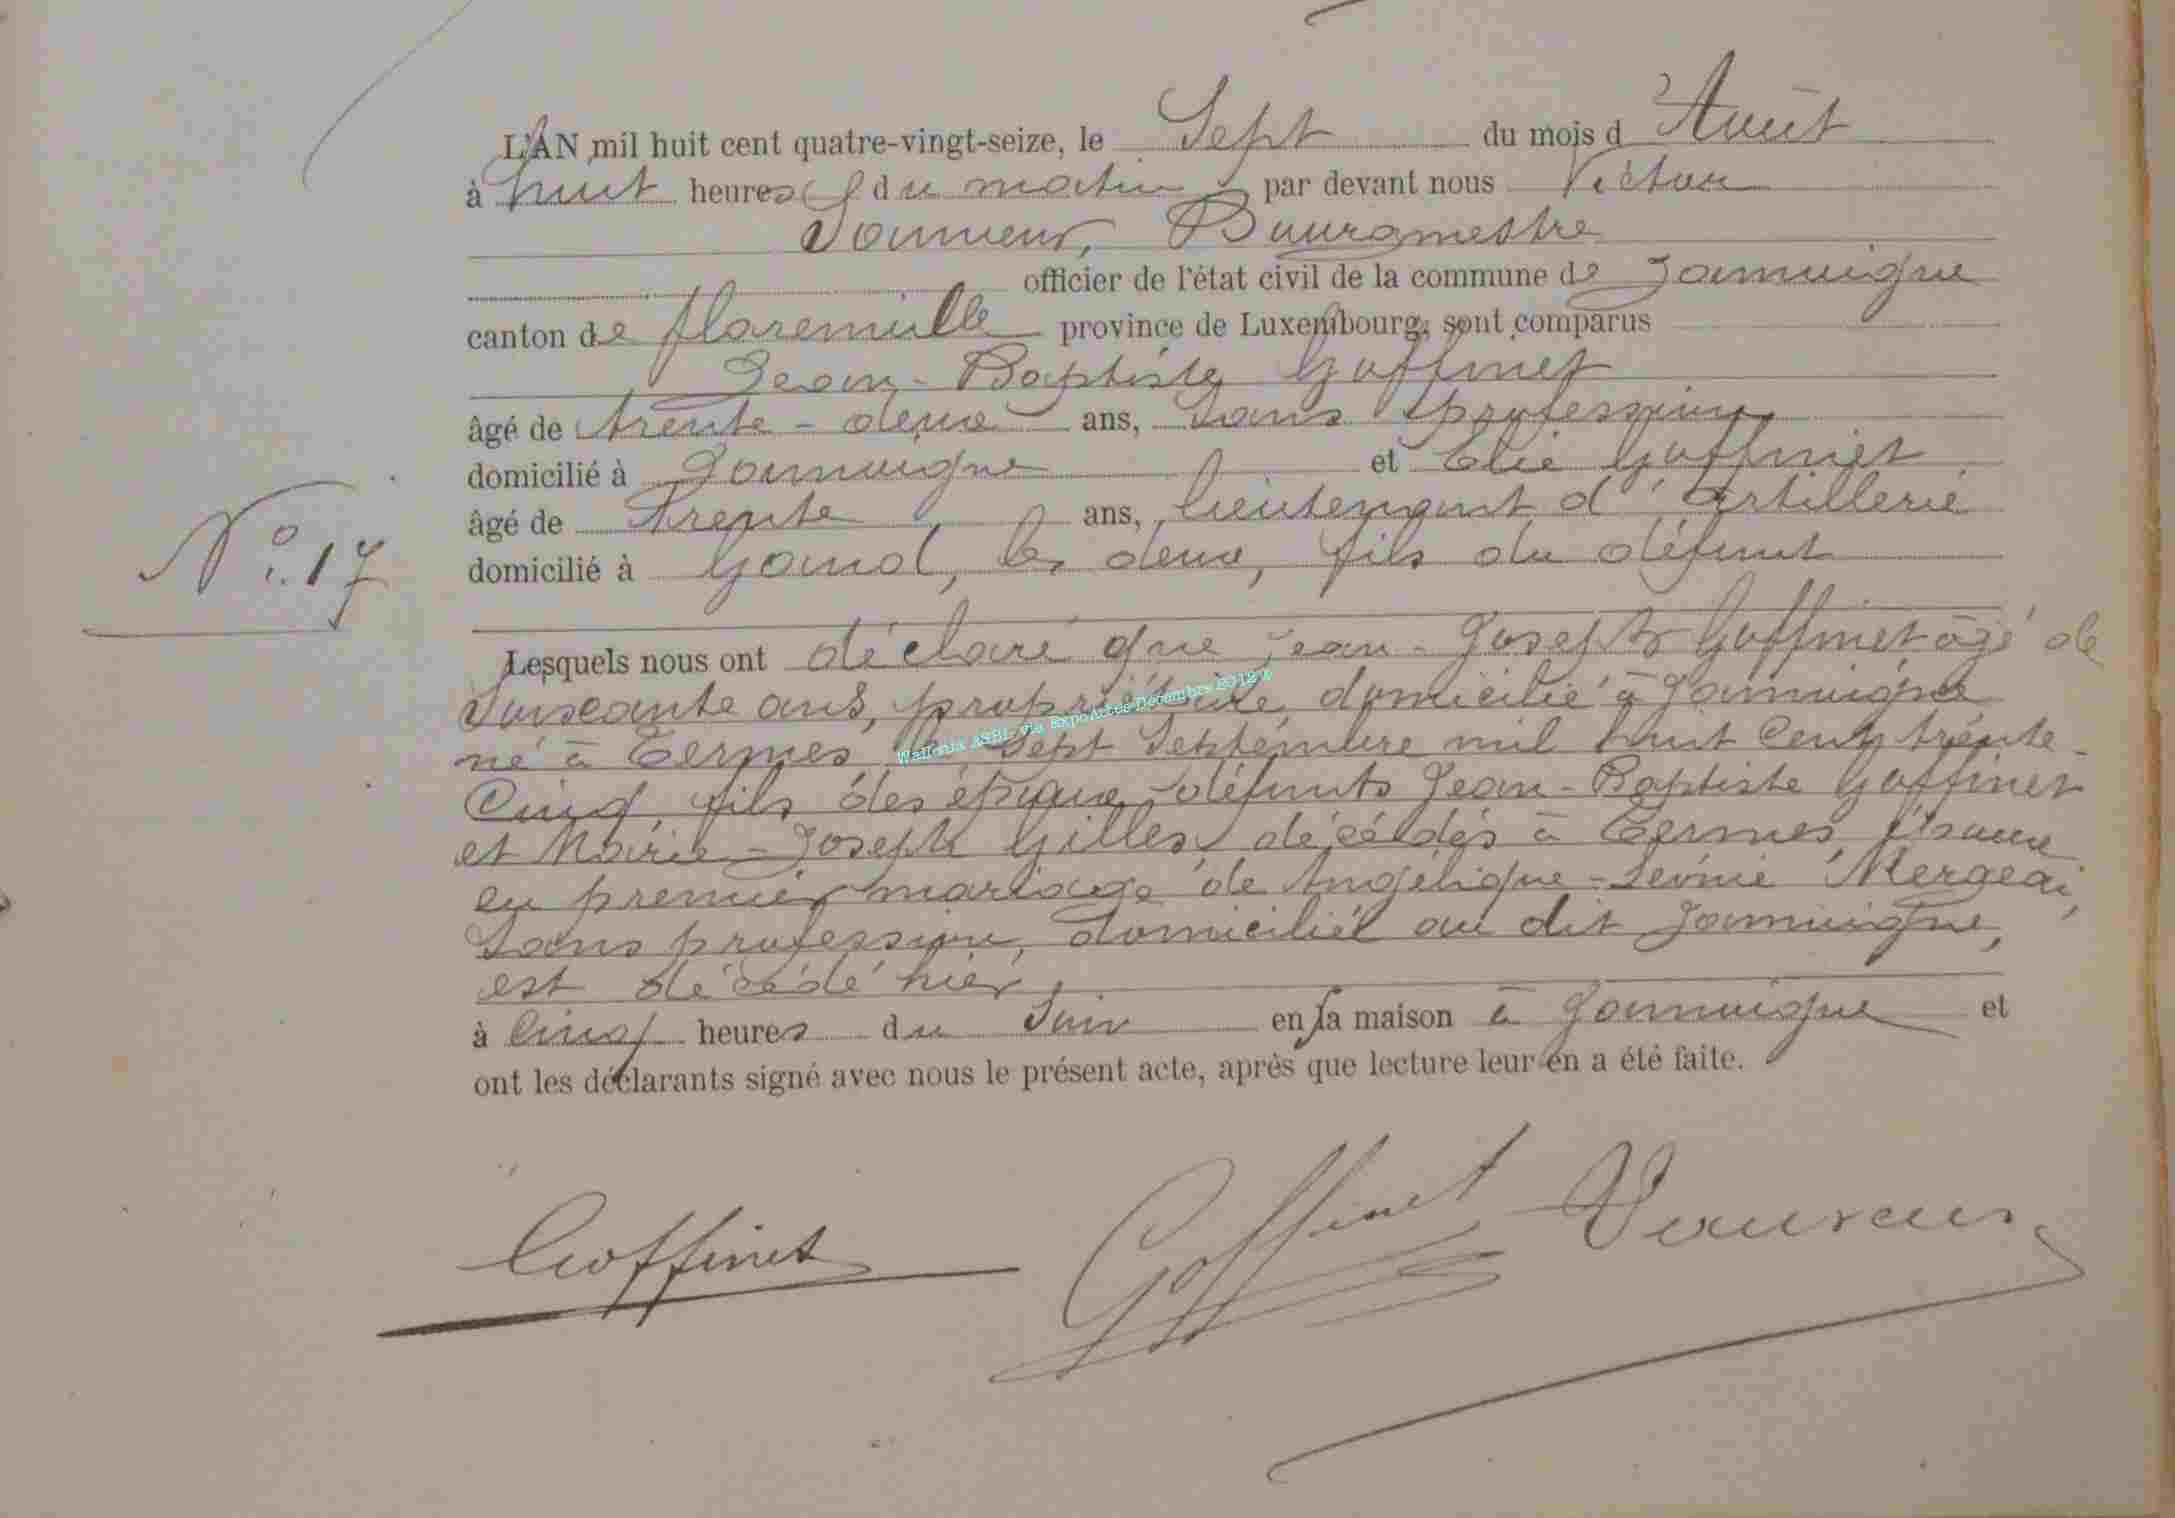 L'AN mil huit cent quatre-vingt-seize, le Sept du mois d'Août
à huit heures du matin, par devant nous Victor
Bourgmestre
officier de l'état civil de la commune de Jamoigne
canton de florenville province de Luxembourg, sont comparus
Jean-Baptiste Goffinet
âgé de trente-deux ans, sans profession,
domicilié à Jamoigne et Elie Goffinet,
âgé de trente ans, lieutenant d'artillerie
domicilié à Gand, les deux, fils du défunt
N° 17
Lesquels nous ont déclaré que jean-Joseph Goffinet âgé de
Soixante ans, propriétaire, domicilié à Jamoigne
né à Termes, le Sept Septembre mil huit Cent trente-
Cinq, fils des époux défunts Jean-Baptiste Goffinet
et Marie-Joseph Gilles, décédés à Termes, époux
en premier mariage de Angélique-Léonie Mergeai,
Sans profession, domiciliée au dit Jamoigne,
est décédé hier,
à Cinq heures du Soir en sa maison à Jamoigne et
ont les déclarants signé avec nous le présent acte, après que lecture leur en a été faite.
Goffinet Goffinet
Wallonia ASBL Via ExpoActes-Décembre 2012